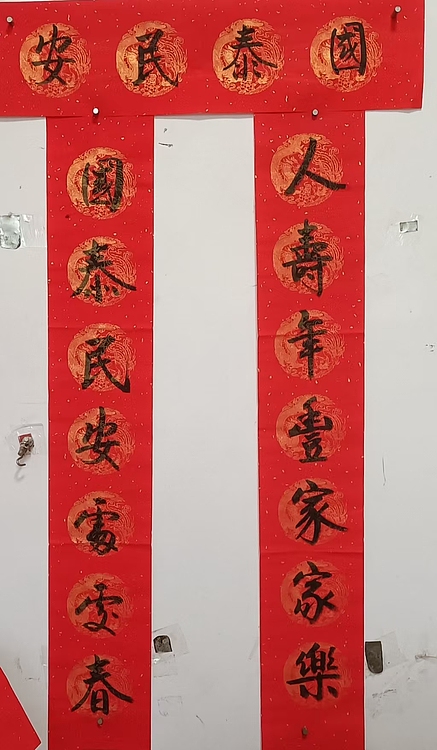 國泰民安
人壽年豐家家樂
國泰民安處處春